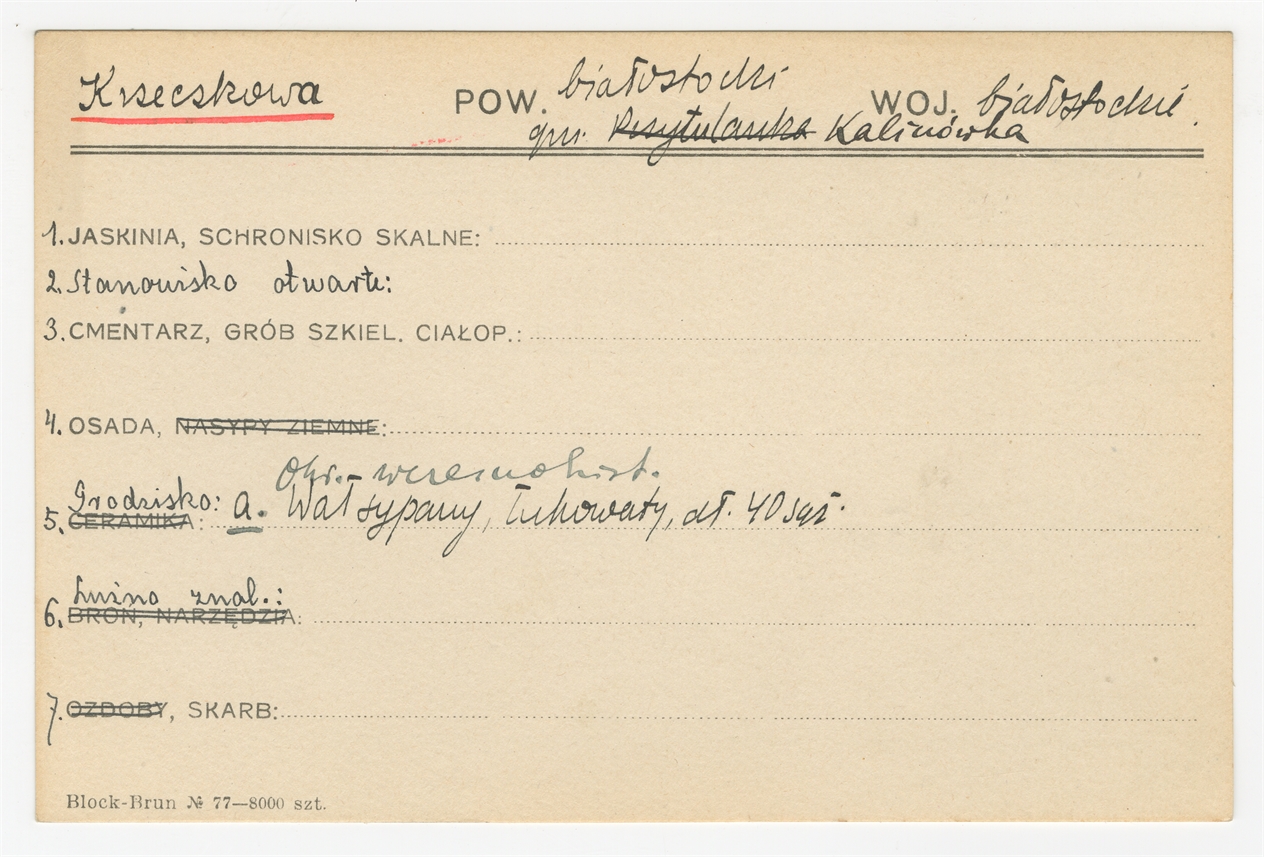 Krzeczkowa POW. białostocki WOJ. białostockie.
gm. Przytulanka Kalinówka
1. JASKINIA, SCHRONISKO SKALNE:
2. Stanowisko otwarte:
3. CMENTARZ, GRÓB SZKIEL. CIAŁOP.:
4. OSADA, NASYPY ZIEMNE:
Okr. wczesnohist.
Grodzisko: a. Wał sypany, łukowaty, dł. 40 sąż.
5. CERAMIKA:
Luźno znal.:
6. BROŃ, NARZĘDZIA:
7. OZDOBY, SKARB:
Block-Brun № 77—8000 szt.